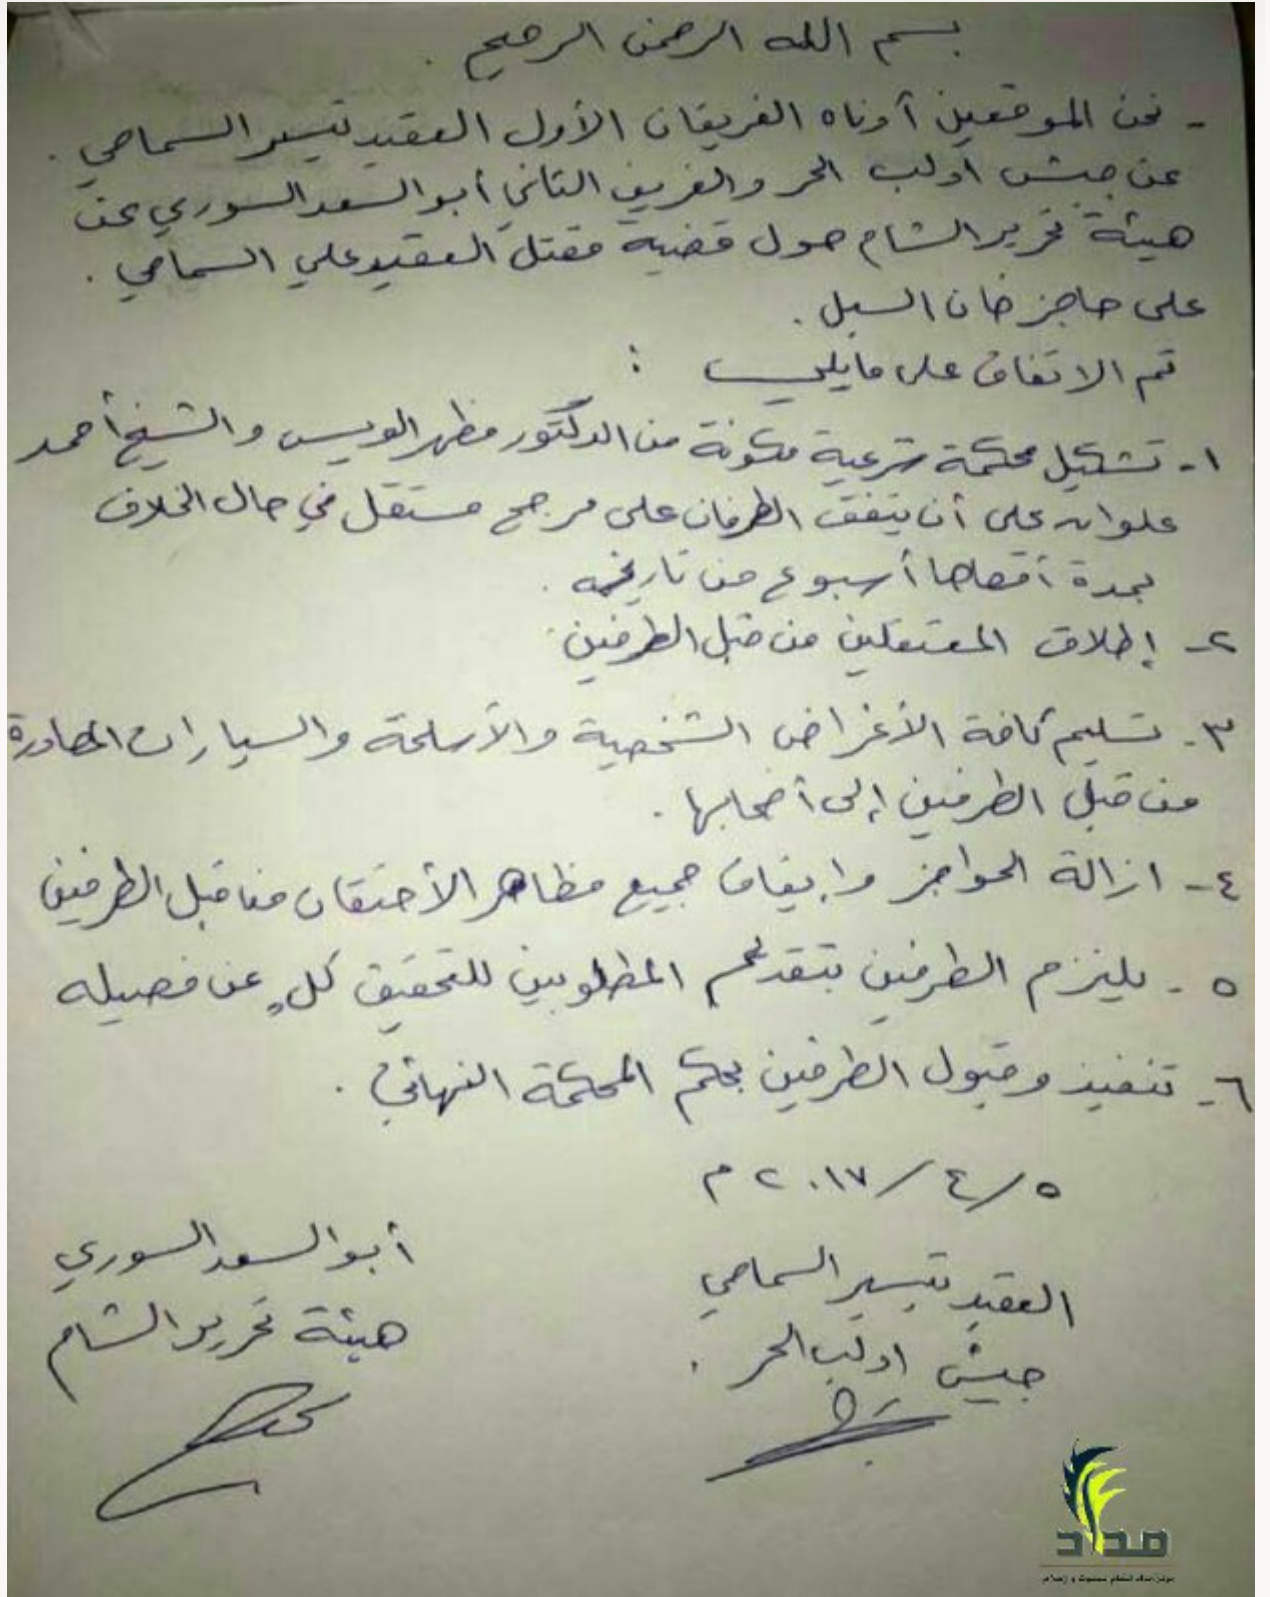 بسم الله الرحمن الرحيم .
- نحن الموقعين أدناه الفريقان الأول العقيد تيسير السماحي .
عن جيش ادلب الحر والفريق الثاني أبو السعد السوري عن
هيئة تحرير الشام حول قضية مقتل العقيد علي السماحي .
على حاجز خان السبل .
تم الاتفاق على مايلي :
١- تشكيل محكمة شرعية مكونة من الدكتور مظهر الويس والشيخ أحمد
علوان على أن يتفق الطرفان على مرجح مستقل في حال الخلاف
بمدة أقصاها أسبوع من تاريخه .
٢- إطلاق المعتقلين من قبل الطرفين .
٣- تسليم كافة الأغراض الشخصية والأسلحة والسيارات المصادرة
من قبل الطرفين إلى أصحابها .
٤- ازالة الحواجز وإيقاف جميع مظاهر الأحتقان من قبل الطرفين
٥- يلتزم الطرفين بتقديم المطلوبين للتحقيق كلٍ عن فصيله
٦- تنفيذ وقبول الطرفين بحكم المحكمة النهائي .
٥/٤/٢٠١٧ م
العقيد تيسير السماحي
جيش ادلب الحر .
أبو السعد السوري
هيئة تحرير الشام
مداد